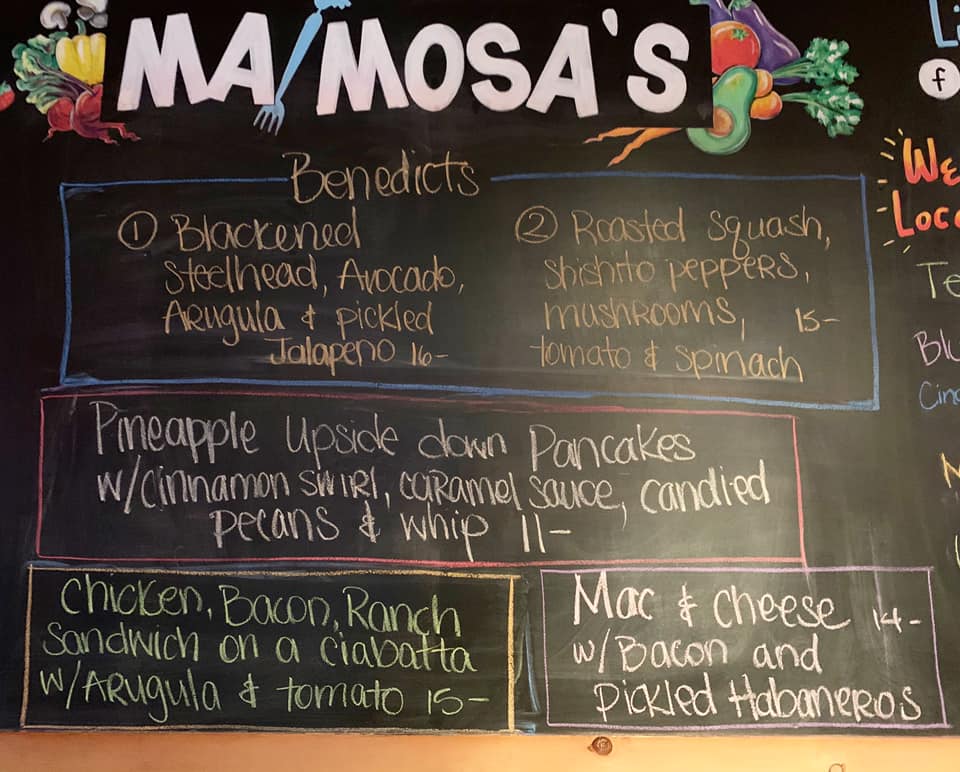 MA/MOSA'S
Benedicts
① Blackened
Steelhead, Avocado,
Arugula & pickled
Jalapeno 16-
② Roasted Squash,
Shishito peppers,
mushrooms, 15-
tomato & spinach
Pineapple Upside down Pancakes
w/Cinnamon swirl, caramel sauce, candied
pecans & whip 11-
Chicken, Bacon, Ranch
Sandwich on a ciabatta
w/Arugula & tomato 15-
Mac & cheese 14-
w/Bacon and
Pickled Habaneros
Li
f
We
Loc
Te
Blu